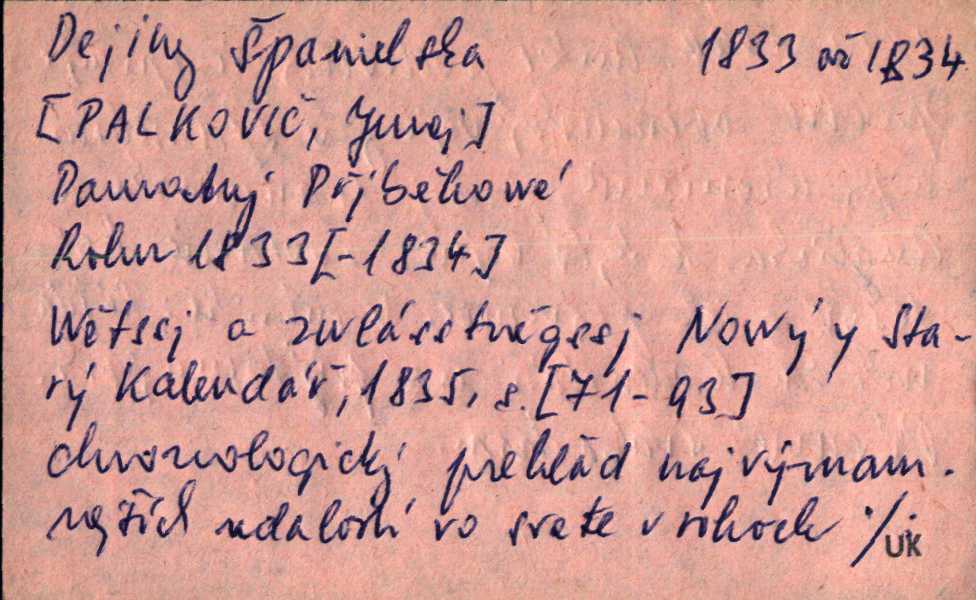 Dejiny Španielska 1833 až 1834
[PALKOVIČ, Juraj]
Pamatnj Přjběhowé
Roku 1833[-1834]
Wětssj a zwlásstněgssj Nowý y Sta-
rý Kalendář, 1835, s. [71-93]
chronologický prehľad najvýznam-
nejších udalostí vo svete v rokoch ./.
UK